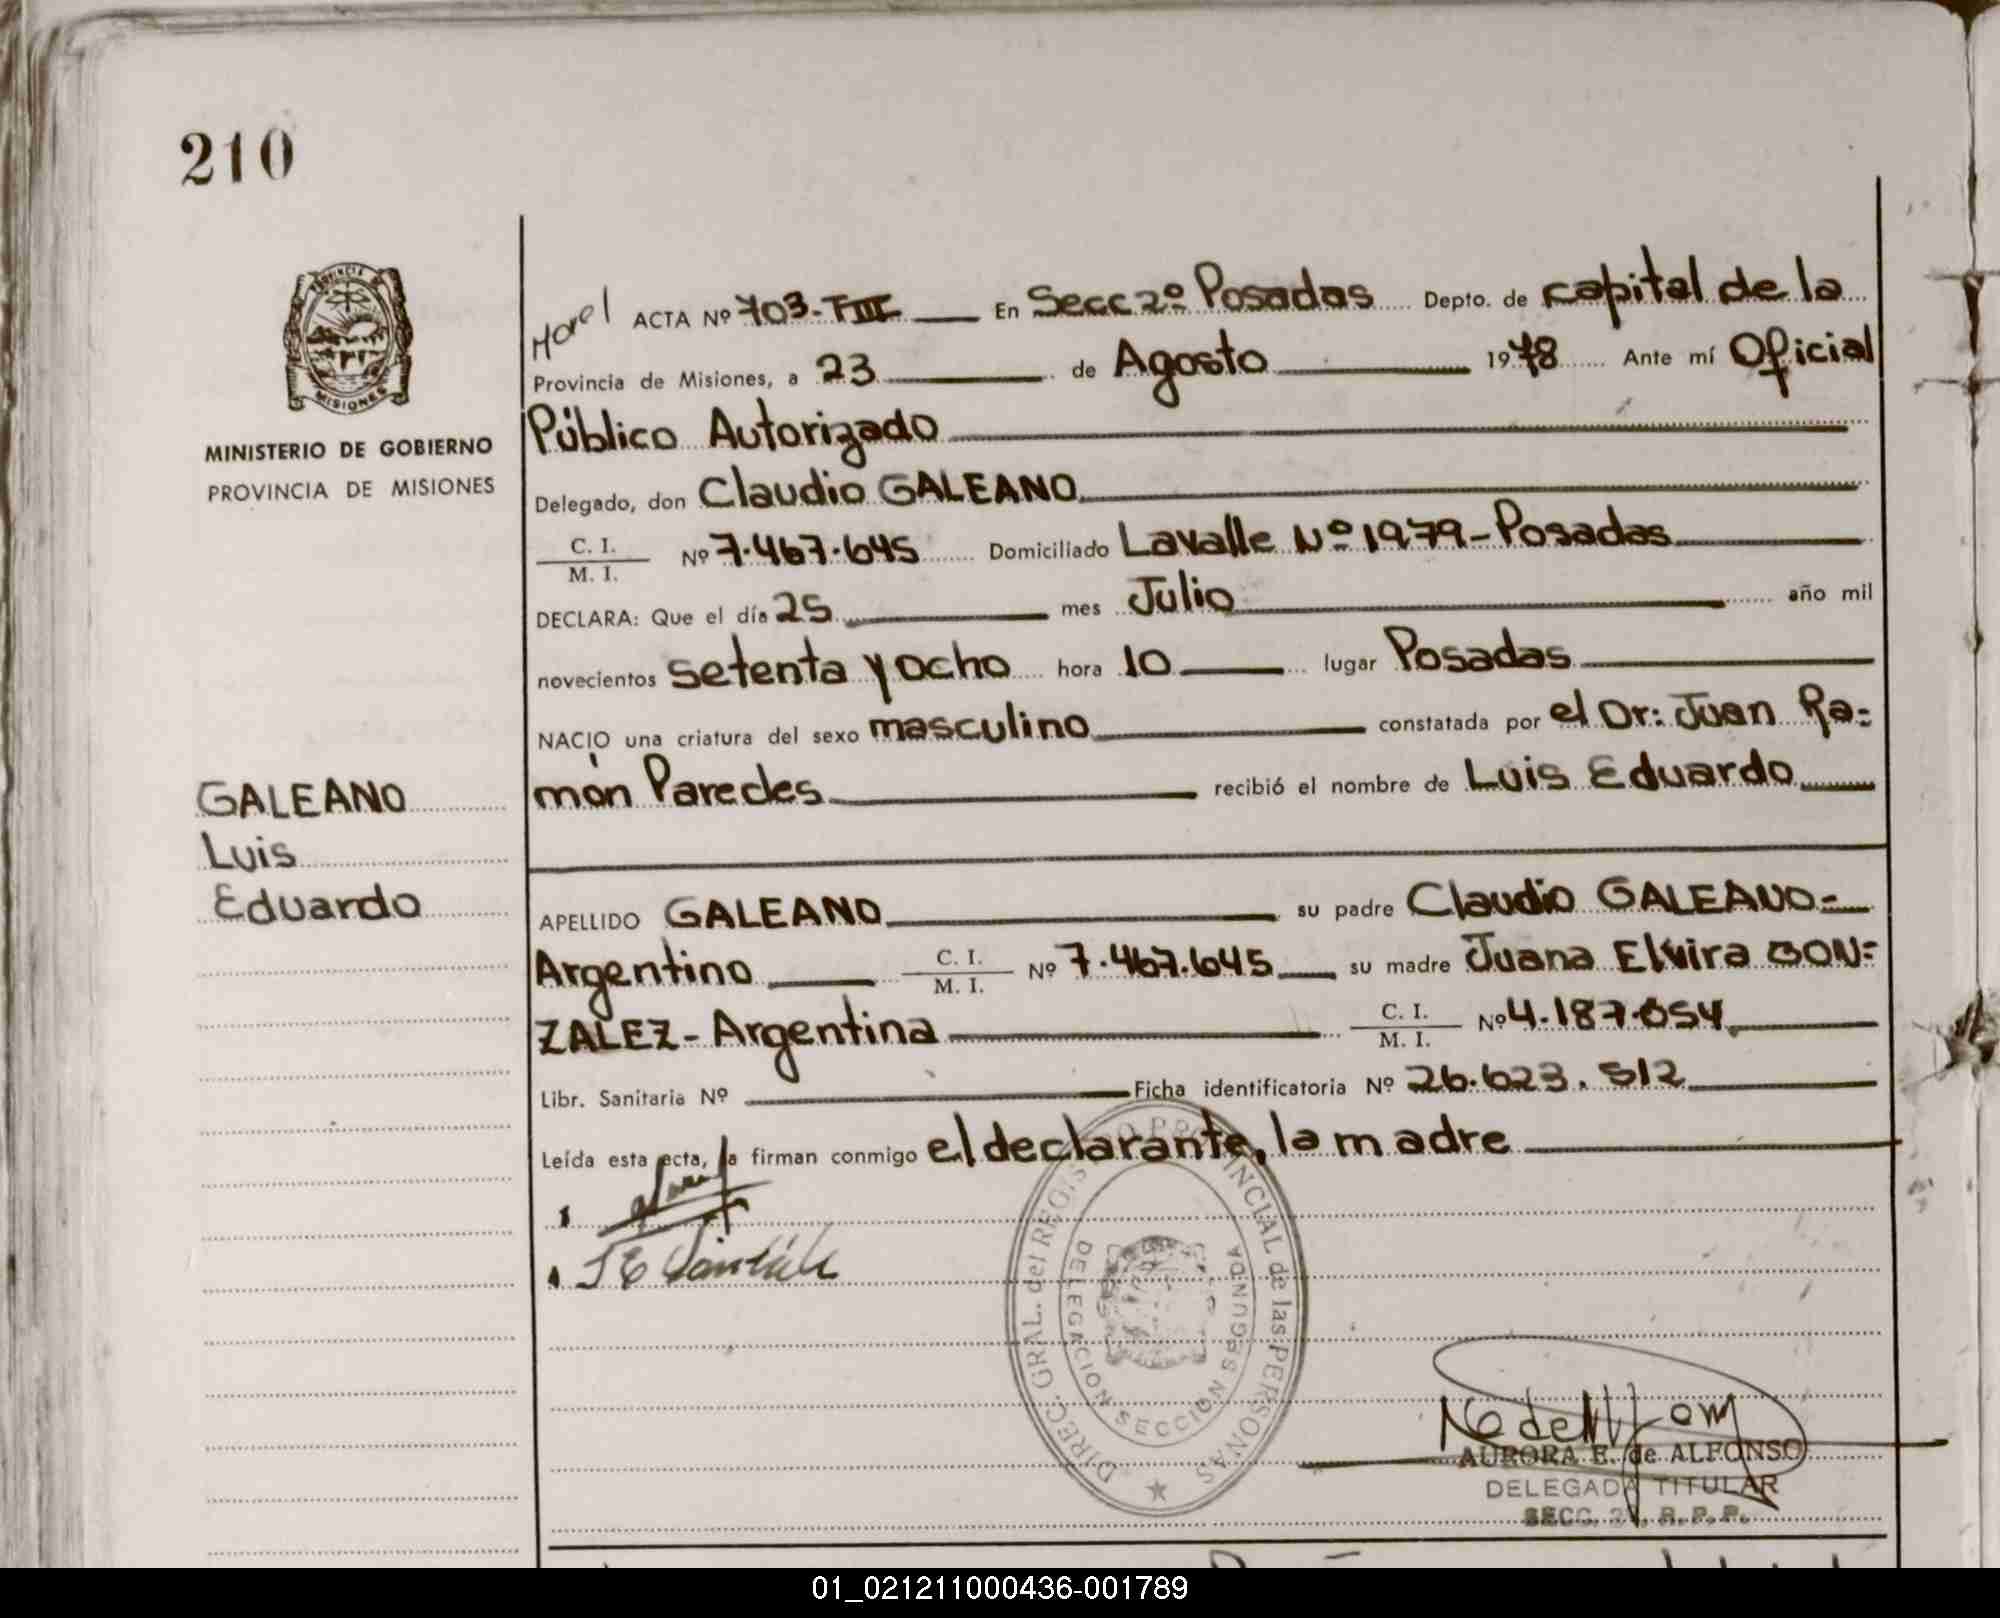 210
Morel ACTA Nº 703-TIII En Secc 2º Posadas Depto. de capital de la
Provincia de Misiones, a 23 de Agosto 1978 Ante mí Oficial
Público Autorizado
Delegado, don Claudio GALEANO
C. I. / M. I. Nº 7.467.645 Domiciliado Lavalle Nº 1979-Posadas
DECLARA: Que el día 25 mes Julio año mil
novecientos setenta y ocho hora 10 lugar Posadas
NACIO una criatura del sexo masculino constatada por el Dr: Juan Ra=
món Paredes recibió el nombre de Luis Eduardo
APELLIDO GALEANO su padre Claudio GALEANO=
Argentino C. I. / M. I. Nº 7.467.645 su madre Juana Elvira GON=
ZALEZ- Argentina C. I. / M. I. Nº 4.187.054
Libr. Sanitaria Nº Ficha identificatoria Nº 26.623.512
Leída esta acta, la firman conmigo el declarante, la madre
PROVINCIA DE
MISIONES
MINISTERIO DE GOBIERNO
PROVINCIA DE MISIONES
GALEANO
Luis
Eduardo
DIREC. GRAL. del REGISTRO PROVINCIAL de las PERSONAS
DELEGACION SECCION SEGUNDA
AURORA E. de ALFONSO
DELEGADA TITULAR
SECC. 2ª. R. P. P.
01_021211000436-001789